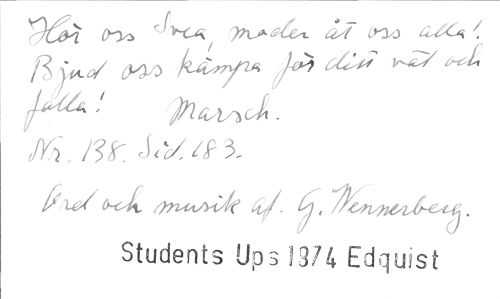 Hör oss Svea, moder åt oss alla!
Bjud oss kämpa för ditt väl och
falla! Marsch.
Nr. 138. Sid. 183.
Ord och musik af. G. Wennerberg.
Students Ups 1874 Edquist